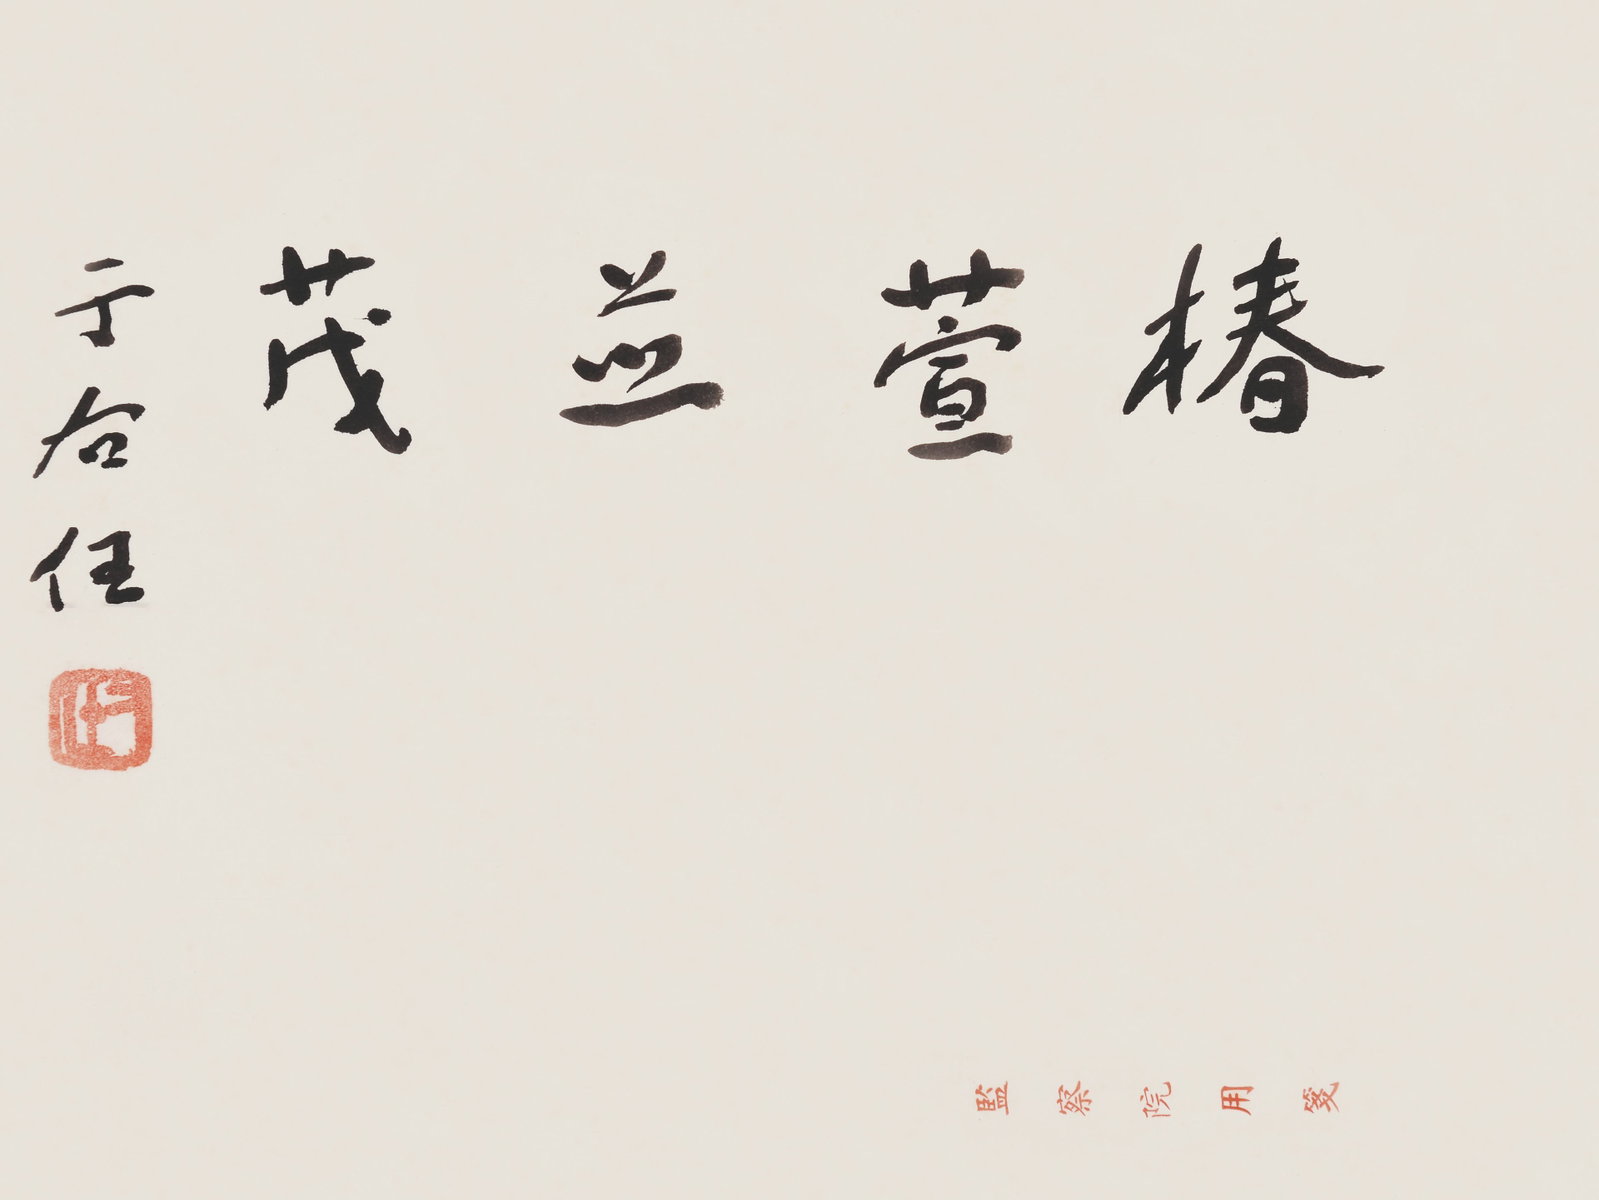 椿萱並茂
于右任
監察院用箋